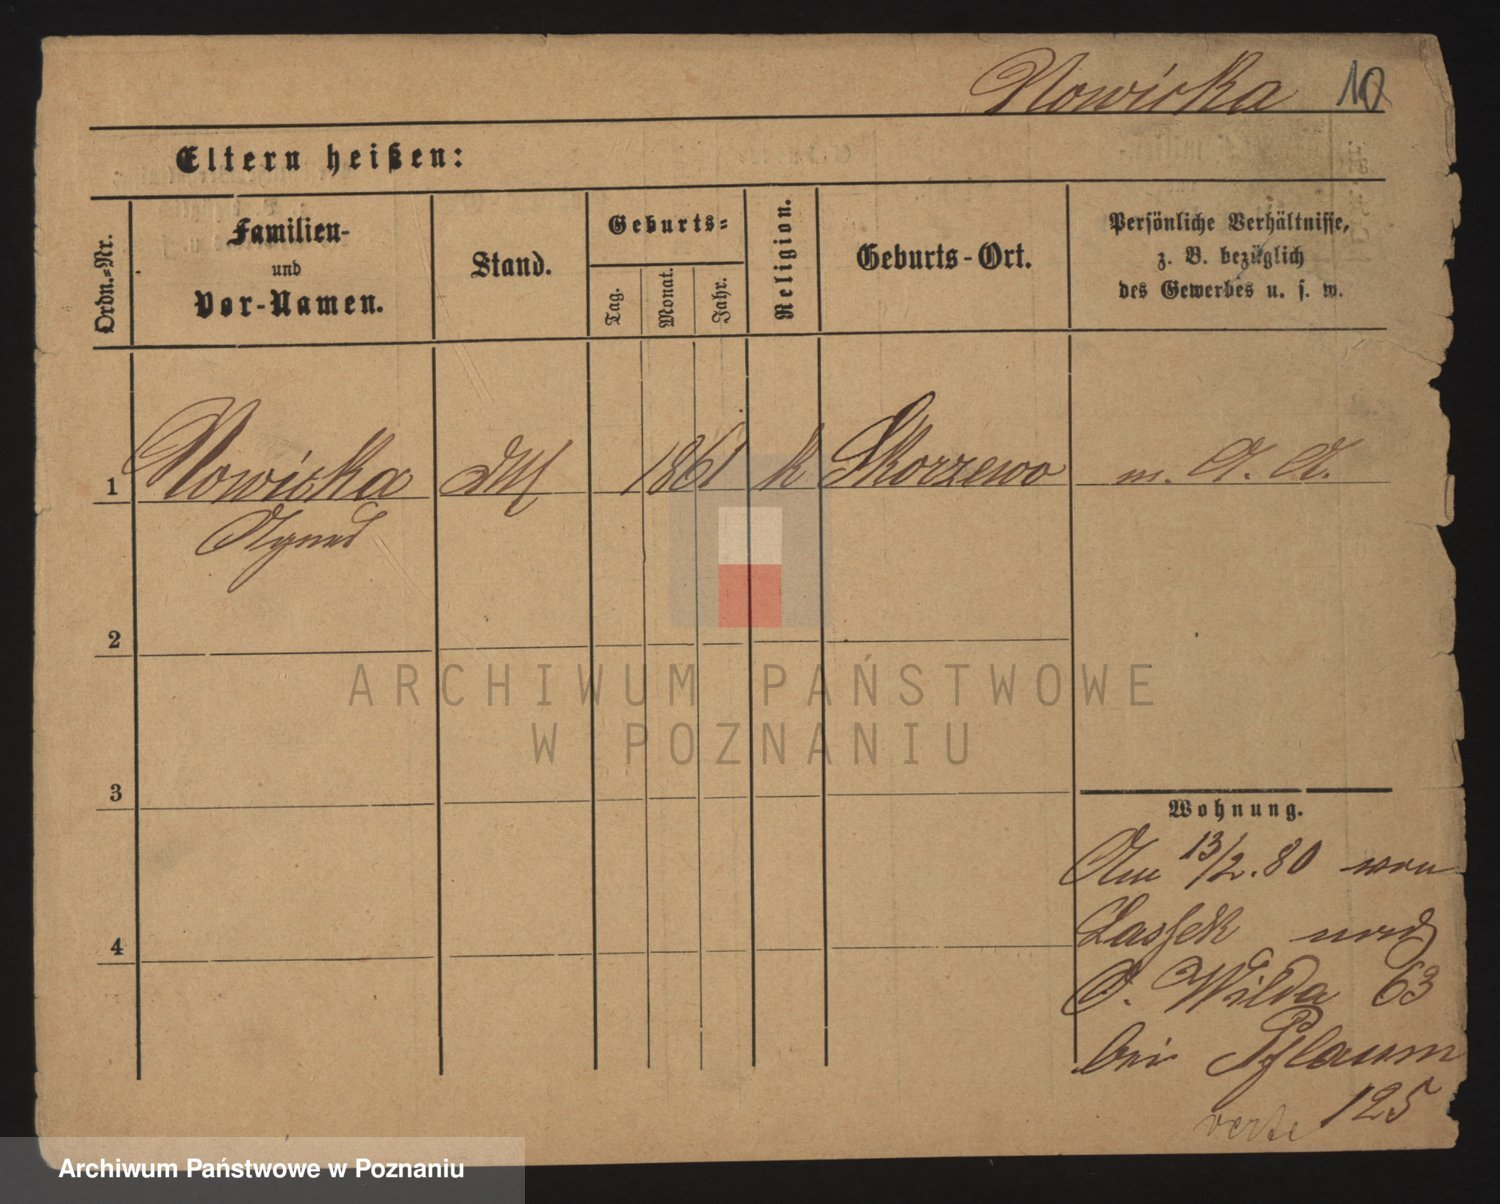 Nowicka 10
Eltern heißen:
Ordn.=Nr.
Familien-
und
Vor-Namen.
Stand.
Geburts=
Tag.
Monat.
Jahr.
Religion.
Geburts-Ort.
Persönliche Verhältnisse,
z. B. bezüglich
des Gewerbes u. s. w.
1 Nowicka 1861 k Skorzewo m. A. A.
Agnes
2
ARCHIWUM PAŃSTWOWE
W POZNANIU
3
Wohnung.
Am 13/2.80 von
Lassek nach
O. Wilda 63
bei Pflaum
125
verte
4
Archiwum Państwowe w Poznaniu